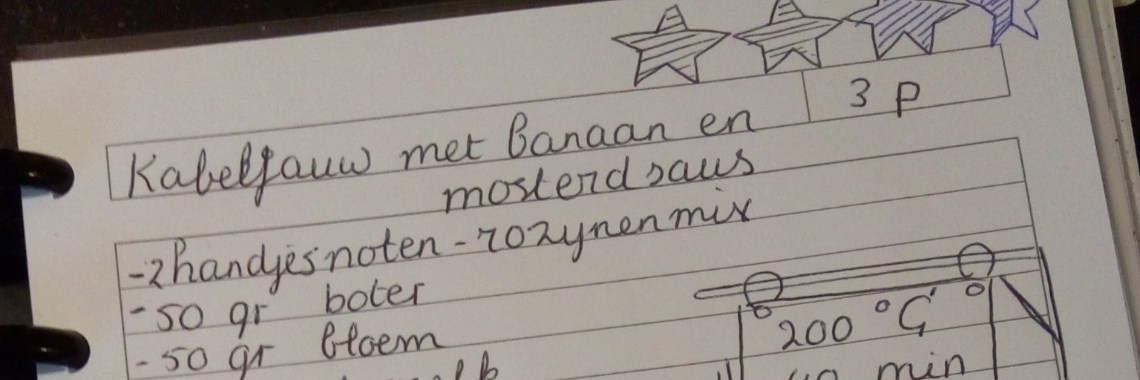 Kabeljauw met banaan en
mosterdsaus
3 p
- 2 handjes noten - rozijnenmix
- 50 gr boter
- 50 gr bloem
200 °C
min